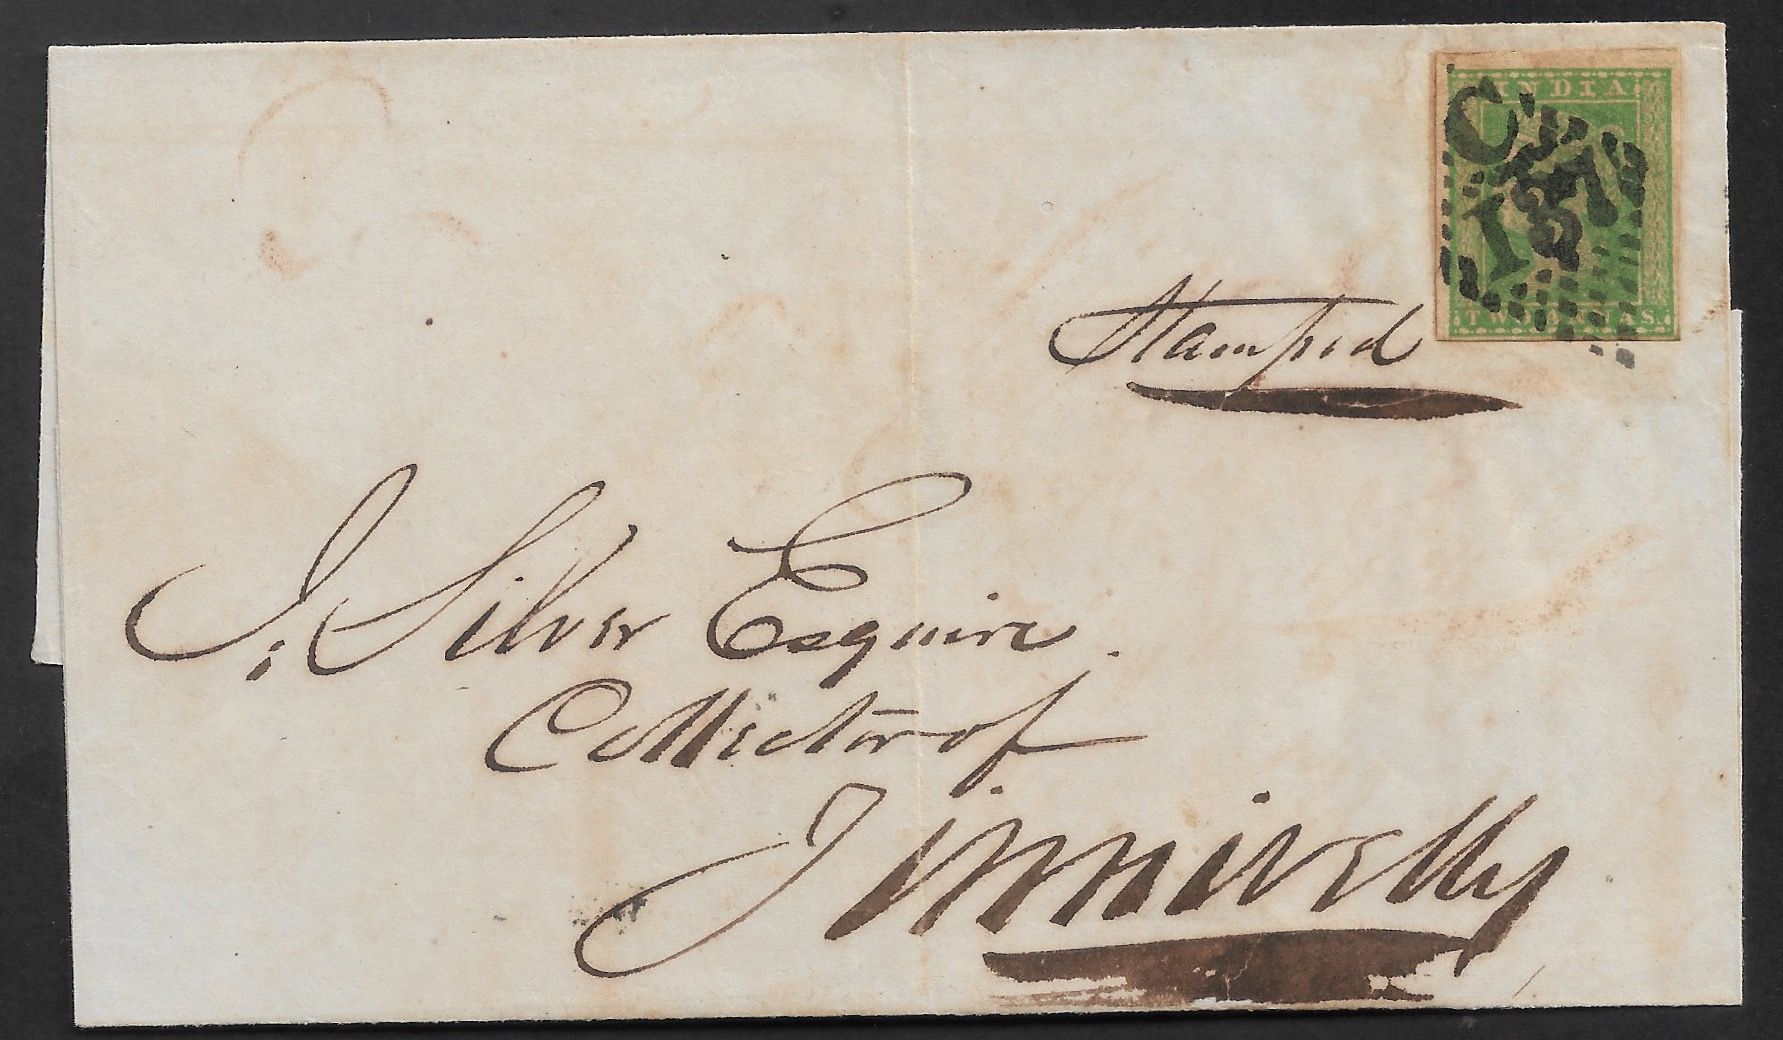 INDIA
C
137
TWO ANNAS.
Stamped
J. Silver Esquire.
Collector of
Tinnivelly